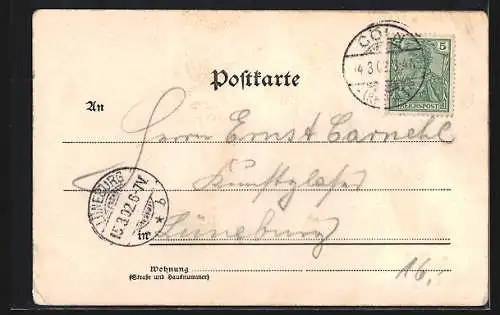 CÖLN
5
14.3.02.3-4N.
REICHSPOST
Postkarte
An
Herrn Ernst Carnehl
Kunstglaser
LÜNEBURG
15.3.02.6-7V.
* b
in Lüneburg
16,-
Wohnung
(Straße und Hausnummer)